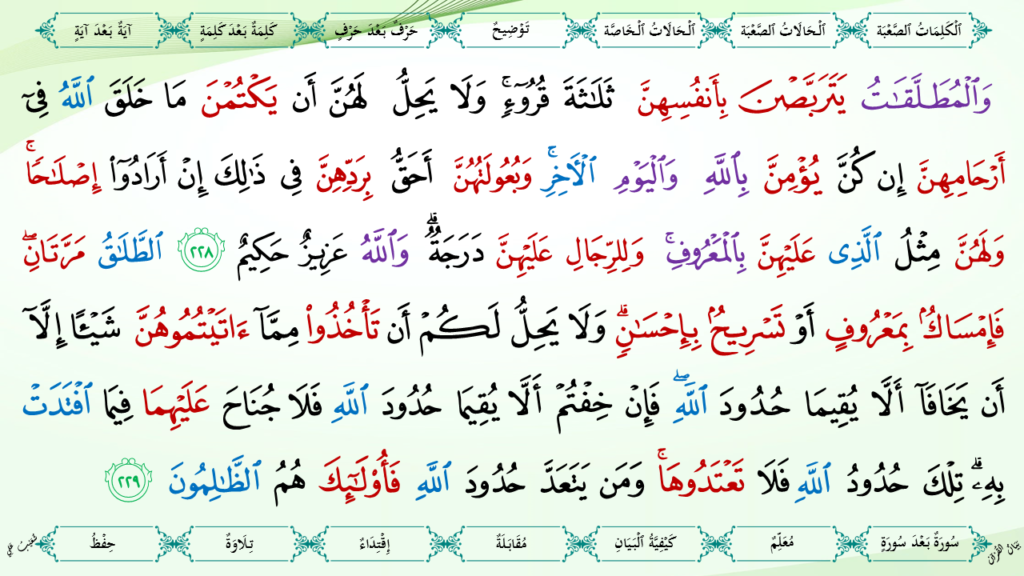 اَلْكَلِمَاتُ الصَّعْبَة اَلْحَالَاتُ الصَّعْبَة اَلْحَالَاتُ الْخَاصَّة تَوْضِيحُ حَرْفٌ بَعْدَ حَرْفٍ كَلِمَةٌ بَعْدَ كَلِمَةٍ آيَةٌ بَعْدَ آيَةٍ
وَٱلْمُطَلَّقَٰتُ يَتَرَبَّصْنَ بِأَنفُسِهِنَّ ثَلَٰثَةَ قُرُوٓءٍۚ وَلَا يَحِلُّ لَهُنَّ أَن يَكْتُمْنَ مَا خَلَقَ ٱللَّهُ فِىٓ
أَرْحَامِهِنَّ إِن كُنَّ يُؤْمِنَّ بِٱللَّهِ وَٱلْيَوْمِ ٱلْأَخِرِۚ وَبُعُولَتُهُنَّ أَحَقُّ بِرَدِّهِنَّ فِى ذَٰلِكَ إِنْ أَرَادُوٓا۟ إِصْلَٰحًاۚ
وَلَهُنَّ مِثْلُ ٱلَّذِى عَلَيْهِنَّ بِٱلْمَعْرُوفِۚ وَلِلرِّجَالِ عَلَيْهِنَّ دَرَجَةٌۗ وَٱللَّهُ عَزِيزٌ حَكِيمٌ ٢٢٨ ٱلطَّلَٰقُ مَرَّتَانِۖ
فَإِمْسَاكٌۢ بِمَعْرُوفٍ أَوْ تَسْرِيحٌۢ بِإِحْسَٰنٍۗ وَلَا يَحِلُّ لَكُمْ أَن تَأْخُذُوا۟ مِمَّآ ءَاتَيْتُمُوهُنَّ شَيْـًٔا إِلَّآ
أَن يَخَافَآ أَلَّا يُقِيمَا حُدُودَ ٱللَّهِۖ فَإِنْ خِفْتُمْ أَلَّا يُقِيمَا حُدُودَ ٱللَّهِ فَلَا جُنَاحَ عَلَيْهِمَا فِيمَا ٱفْتَدَتْ
بِهِۦۗ تِلْكَ حُدُودُ ٱللَّهِ فَلَا تَعْتَدُوهَاۚ وَمَن يَتَعَدَّ حُدُودَ ٱللَّهِ فَأُو۟لَٰٓئِكَ هُمُ ٱلظَّٰلِمُونَ ٢٢٩
سُورَةٌ بَعْدَ سُورَةٍ مُعَلِّمٌ كَيْفِيَّةُ الْبَيَانِ مُقَابَلَةٌ إِقْتِدَاءٌ تِلَاوَةٌ حِفْظُ